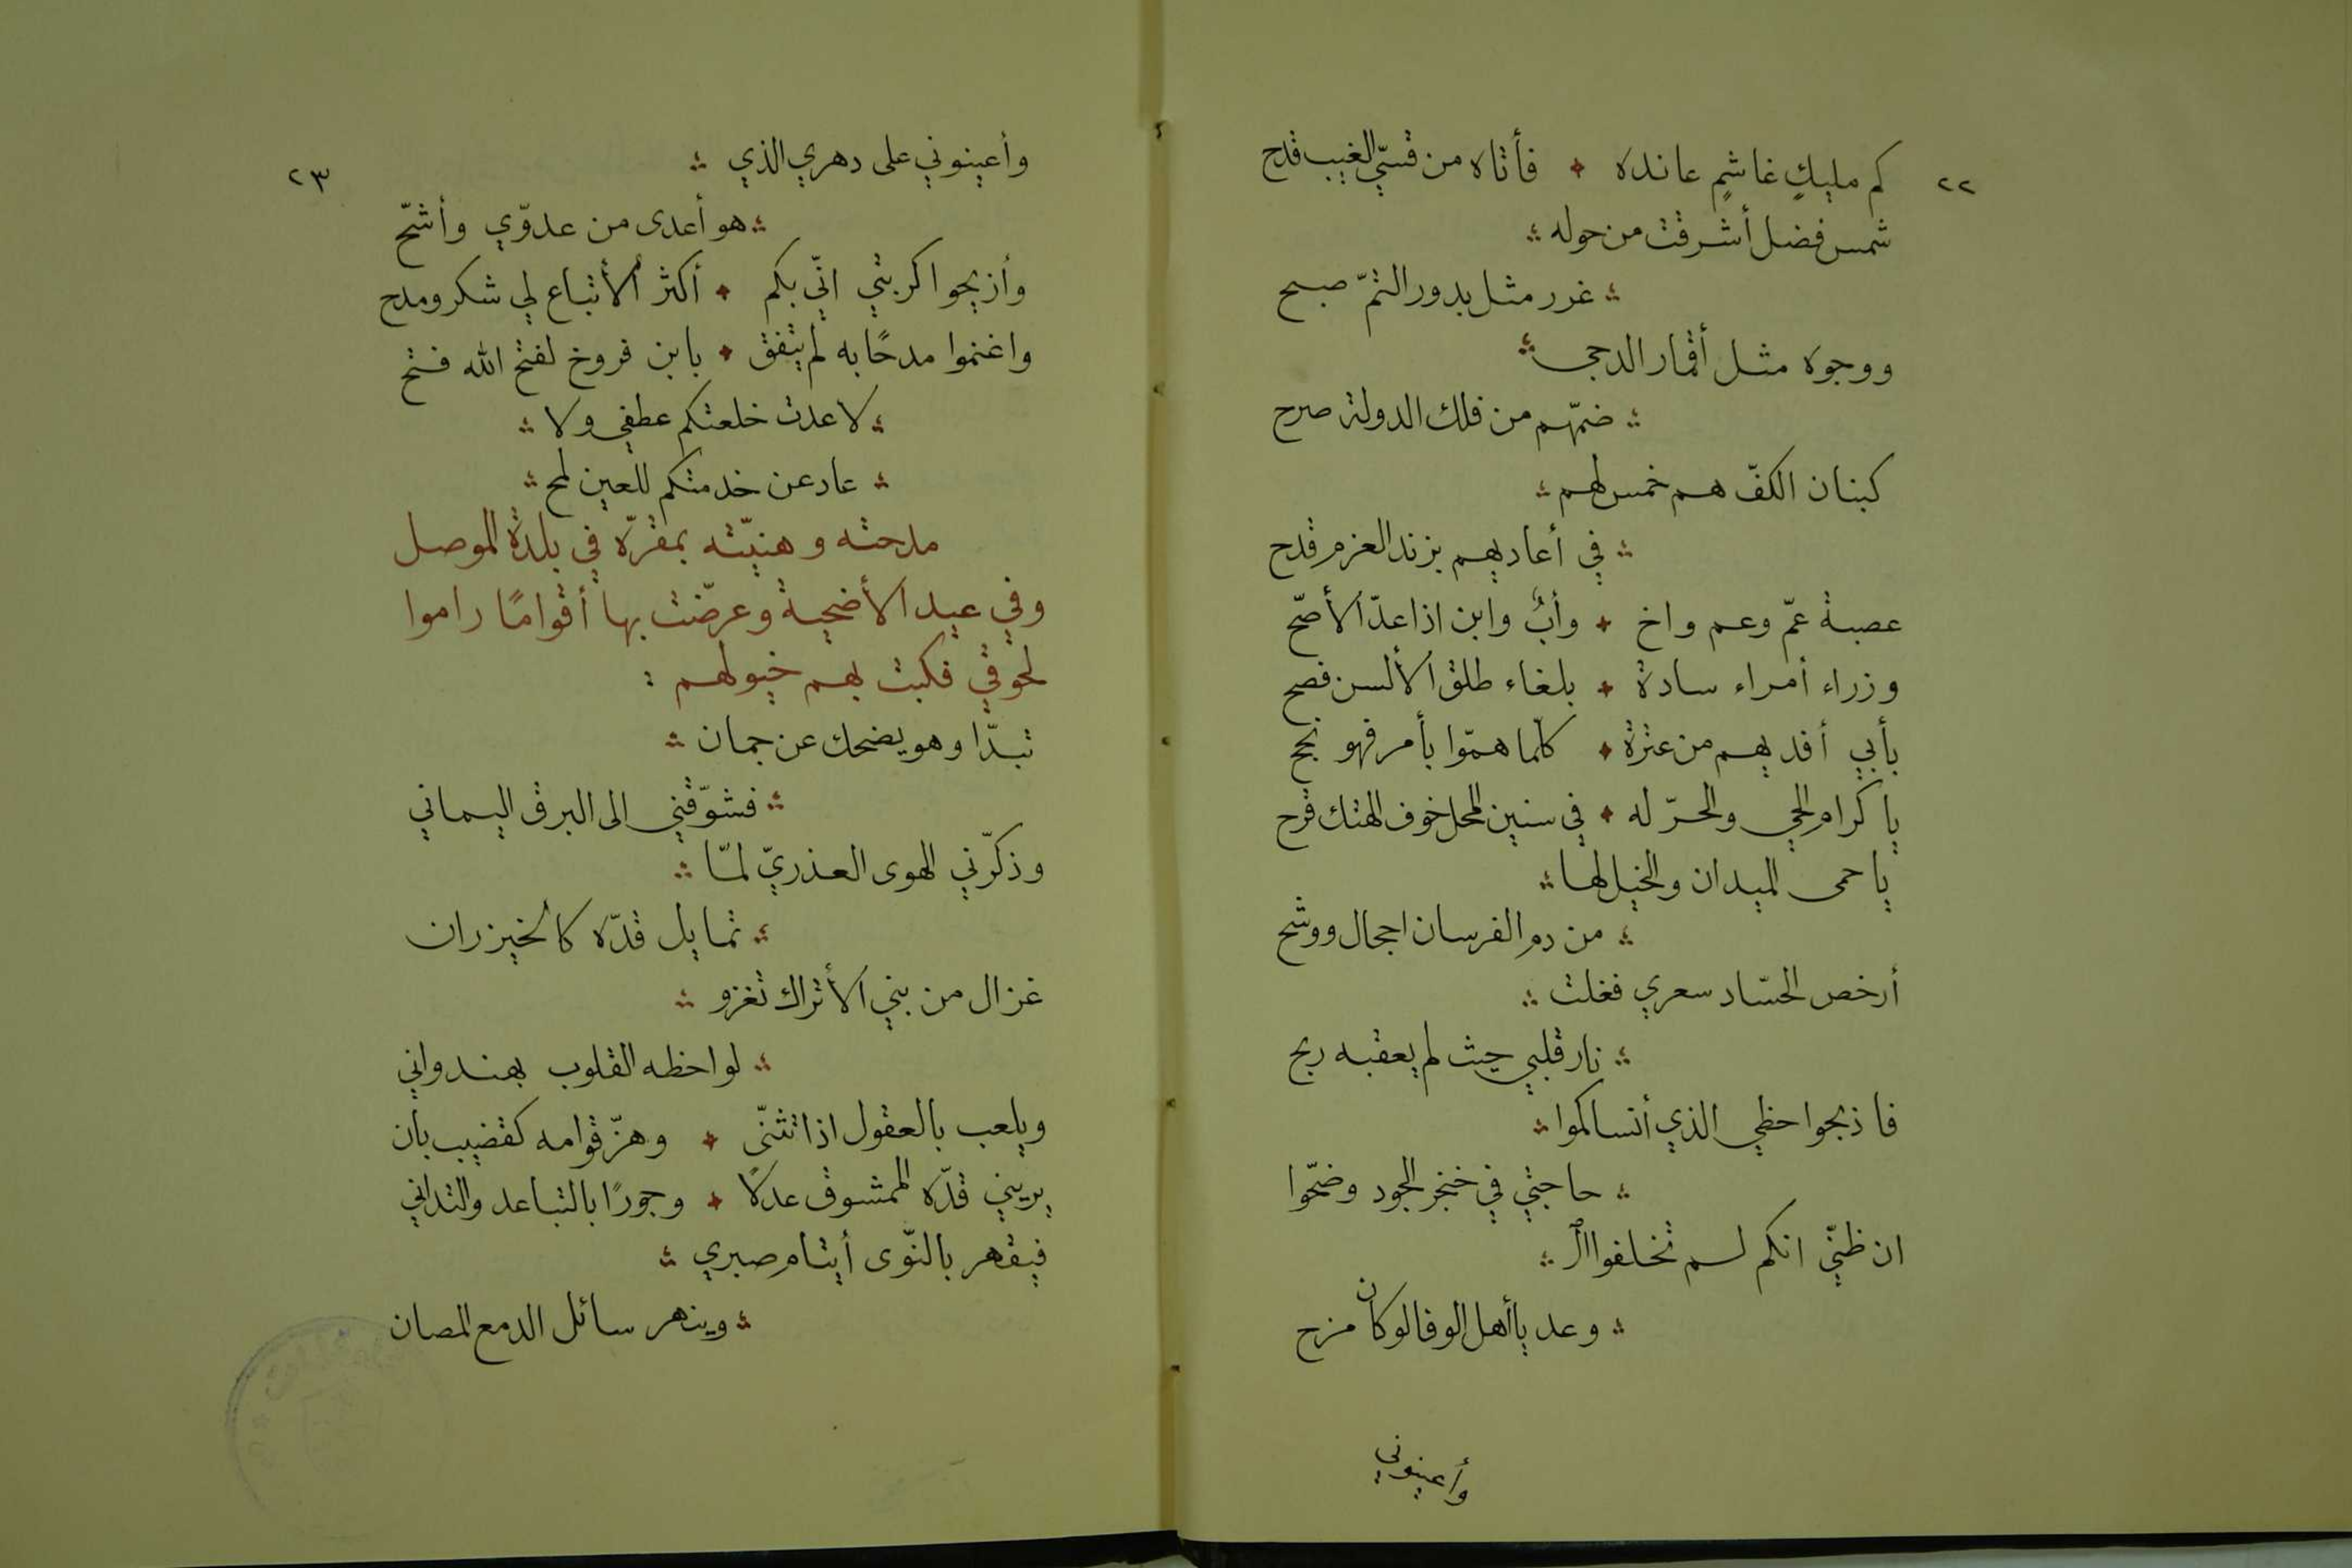 ٢٢
كم مليكٍ غاشمٍ عانده ✦ فأتاه من قسيّ الغيب قدح
شمس فضل أشرقت من حوله ؞
؞ غرر مثل بدور التمّ صبح
ووجوه مثل أقمار الدجى ؞
؞ ضمّهم من فلك الدولة صرح
كبنان الكفّ هم خمس لهم ؞
؞ في أعاديهم بزند العزم قدح
عصبة عمّ وعم واخ ✦ وأبٌ وابن اذا عدّ الأصحّ
وزراء أمراء سادة ✦ بلغاء طلق الألسن فصح
بأبي أفديهم من عترة ✦ كلّما همّوا بأمر فهو نجح
يا كرام الحي والحرّ له ✦ في سنين المحل خوف الهتك قرح
يا حمى الميدان والخيل لها ؞
؞ من دم الفرسان احجال ووشح
أرخص الحسّاد سعري فغلت ؞
؞ نار قلبي حيث لم يعقبه ربح
فاذبحوا حظي الذي أنساكموا ؞
؞ حاجتي في خنجر الجود وضحّوا
ان ظنّي انكم لسم تخلفوا الـ ؞
؞ وعد يا أهل الوفا لو كان مزح
وأعينوني
٢٣
وأعينوني على دهري الذي ؞
؞ هو أعدى من عدوّي وأشحّ
وأزيحوا كربتي انّي بكم ✦ أكثر الأتباع لي شكر ومدح
واغنموا مدحًا به لم يتفق ✦ بابن فروخ لفتح الله فتح
؞ لا عدت خلعتكم عطفي ولا ؞
؞ عاد عن خدمتكم للعين لمح ؞
مدحته وهنيّته بمقرّه في بلدة الموصل
وفي عيد الأضحية وعرضّت بها أقوامًا راموا
لحوقي فكبت بهم خيولهم :
تبدّا وهو يضحك عن جمان ؞
؞ فشوّقني الى البرق اليماني
وذكرّني الهوى العذريّ لمّا ؞
؞ تمايل قدّه كالخيزران
غزال من بني الأتراك تغزو ؞
؞ لواحظه القلوب بهندواني
ويلعب بالعقول اذا تثنّى ✦ وهزّ قوامه كقضيب بان
يريني قدّه الممشوق عدلًا ✦ وجورًا بالتباعد والتداني
فيقهر بالنّوى أيتام صبري ؞
؞ وينهر سائل الدمع المصان